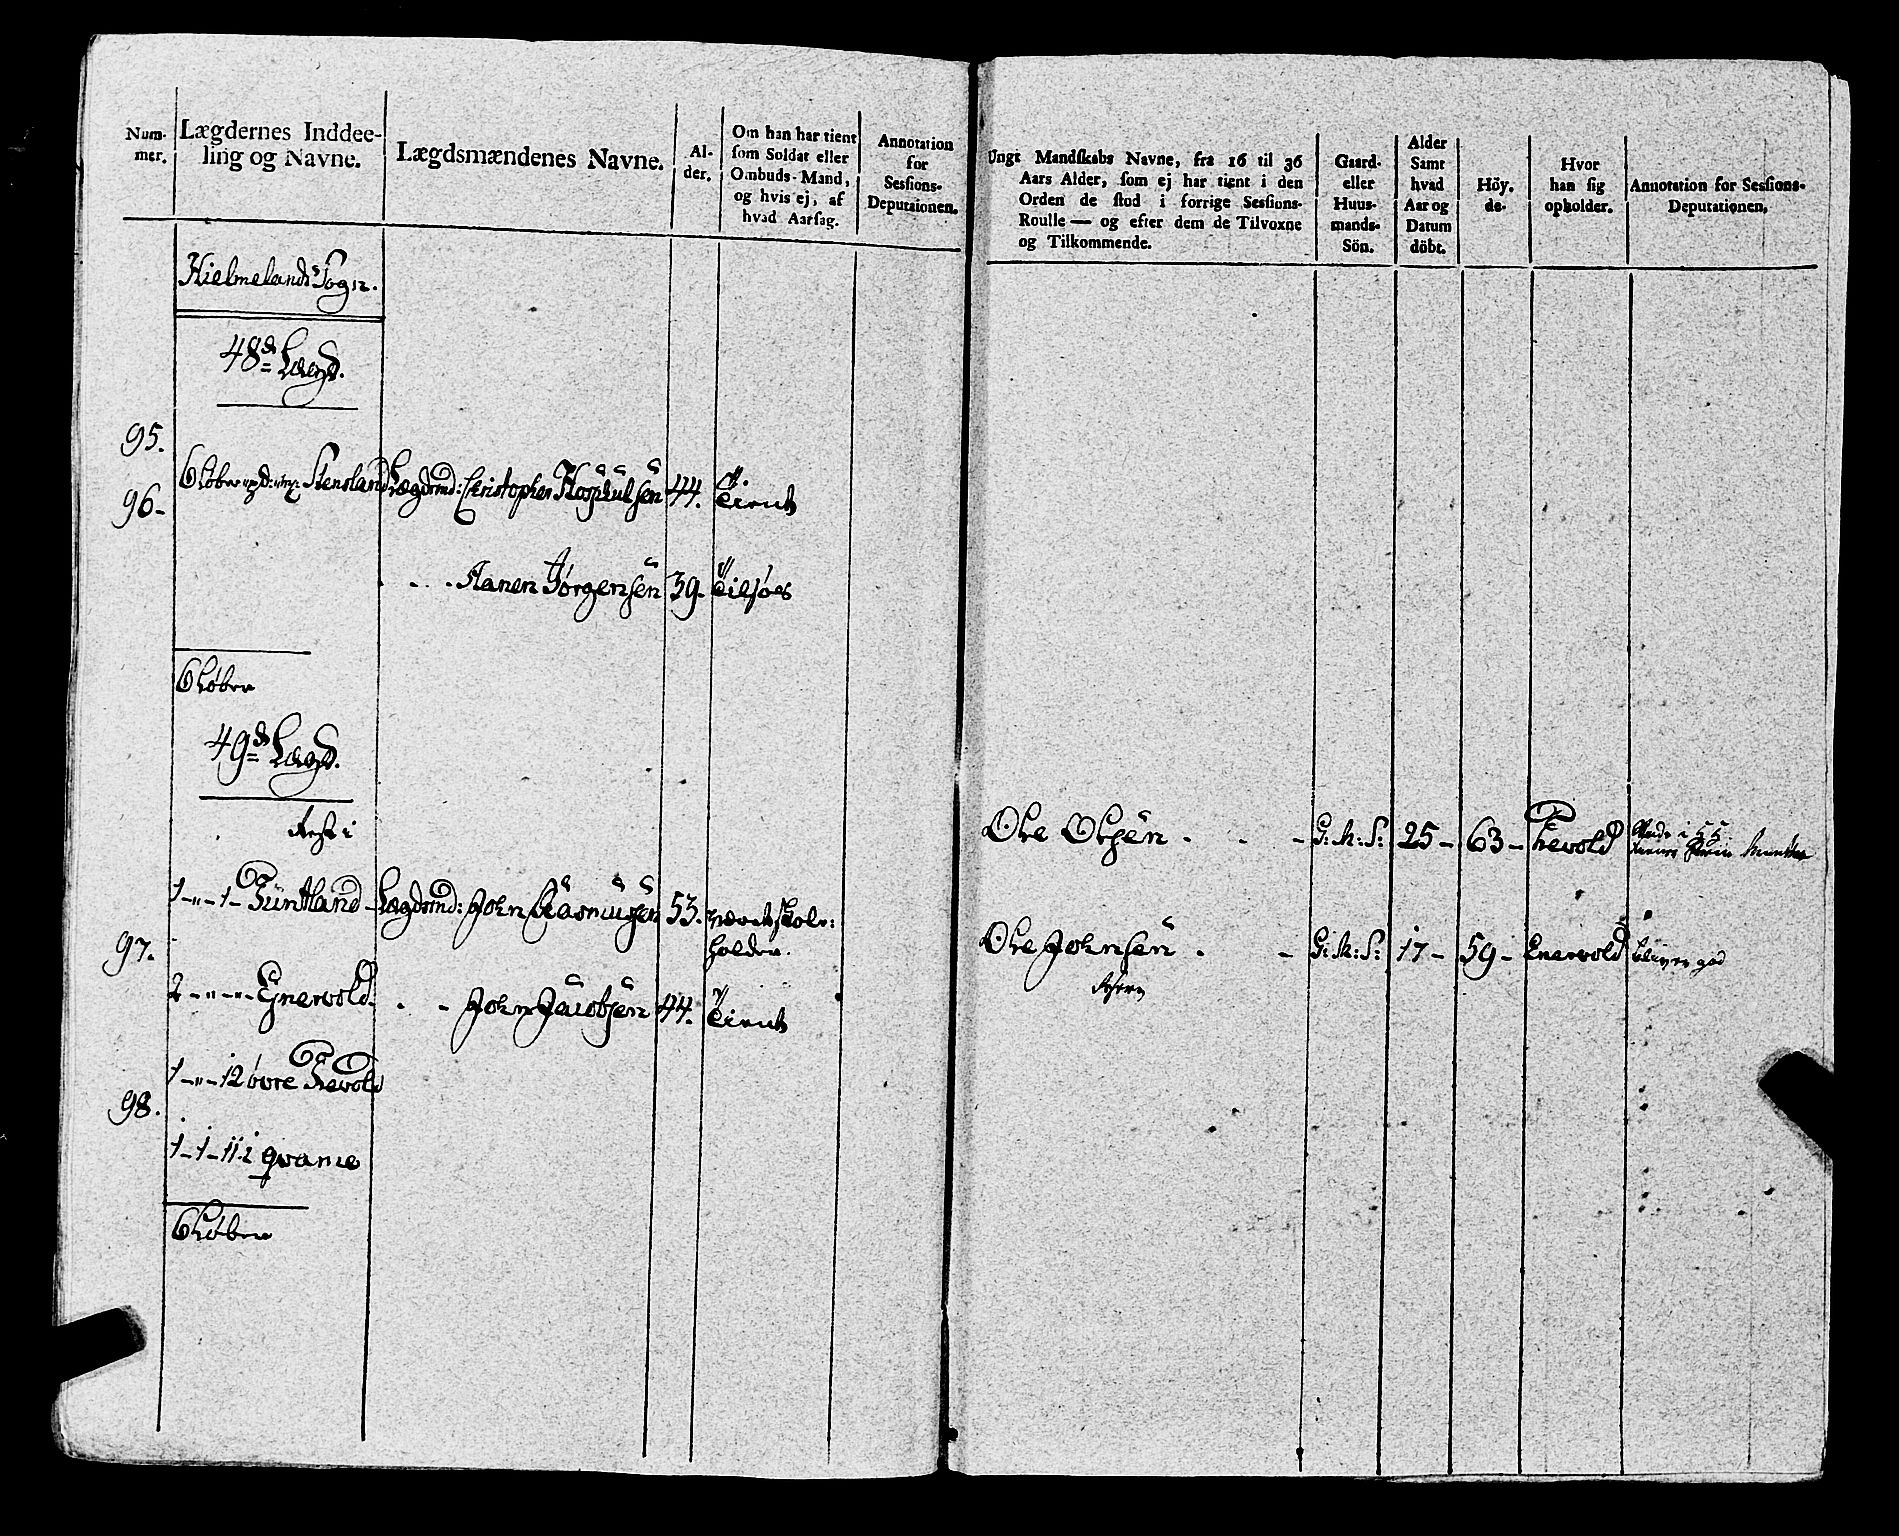 Num-
mer.
Lægdernes Inddee-
ling og Navne.
Lægdsmændenes Navne.
Al-
der.
Om han har tient
som Soldat eller
Ombuds-Mand,
og hvis ej, af
hvad Aarsag.
Annotation
for
Sessions-
Deputaionen.
Hielmelands Sogn.
48de Lægd.
95.
96-
6 Løber Stensland Lægdsmd: Christopher 44. Tient
Aanen Jørgensen 39- Tilsøes
6 Løber
49de Lægd.
i
1-"-1- Lægdsmd: John Rasmusen 53. været skole-
holder.
97.
2-"-"- Enervold - - John Jacobsen 44. Tient
1-"-12 övre Tevold
98.
1-1-11 i qvame
6 Løber
Ungt Mandskabs Navne, fra 16 til 36
Aars Alder, som ej har tient i den
Orden de stod i forrige Sessions-
Roulle — og efter dem de Tilvoxne
og Tilkommende.
Gaard-
eller
Huus-
mands-
Sön.
Alder
Samt
hvad
Aar og
Datum
döbt.
Höy-
de.
Hvor
han sig
opholder.
Annotation for Sessions-
Deputationen.
Ole Olsen - - G: M: S: 25- 63- Tevold
Ole Johnsen - - G: M: S: 17- 59- Enervold bliver god